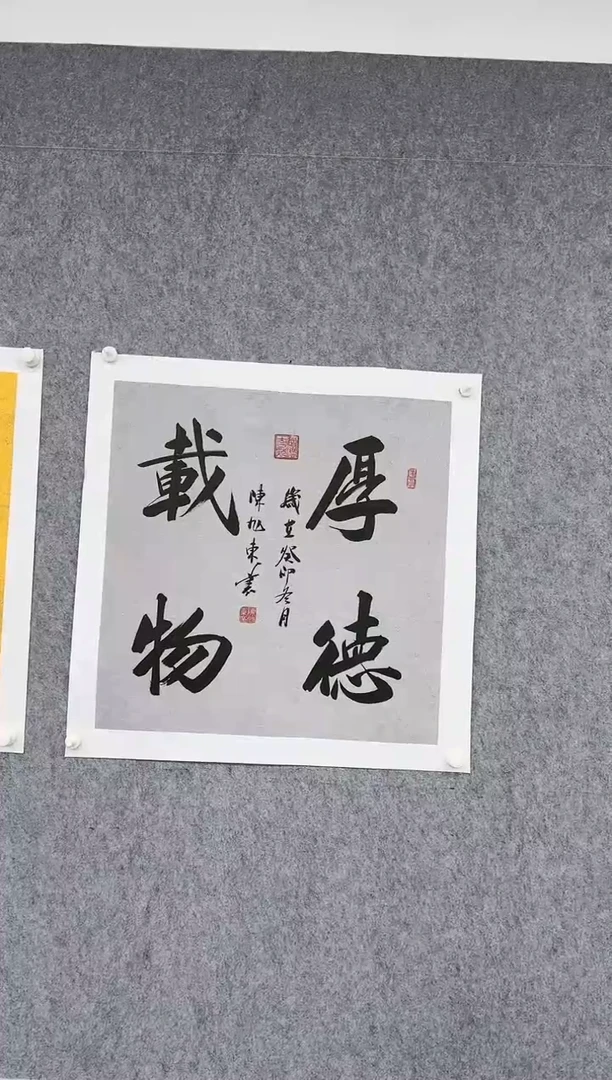 厚德
載物
歲在癸卯冬月
陳旭東書